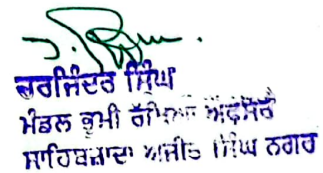 ਬਰਜਿੰਦਰ ਸਿੰਘ
ਮੰਡਲ ਭੂਮੀ ਰੱਖਿਆ ਅਫਸਰ
ਸਾਹਿਬਜ਼ਾਦਾ ਅਜੀਤ ਸਿੰਘ ਨਗਰ